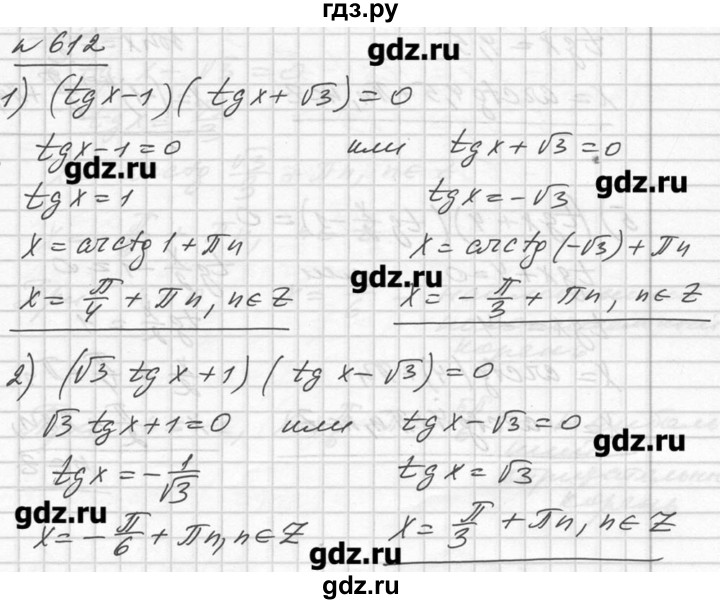 гдз.ру
n 612
gdz.ru
1) (tgx-1)(tgx+√3)=0
tgx-1=0 или tgx+√3=0
gdz.ru gdz.ru
tgx=1 tgx=-√3
x=arctg1+πn x=arctg(-√3)+πn
gdz.ru
x=π/4+πn, n∈Z x=-π/3+πn, n∈Z
2) (√3 tg x+1)(tg x-√3)=0
√3 tgx+1=0 или tgx-√3=0
gdz.ru
tgx=-1/√3 tgx=√3
gdz.ru
x=-π/6+πn, n∈Z x=π/3+πn, n∈Z
gdz.ru
gdz.ru